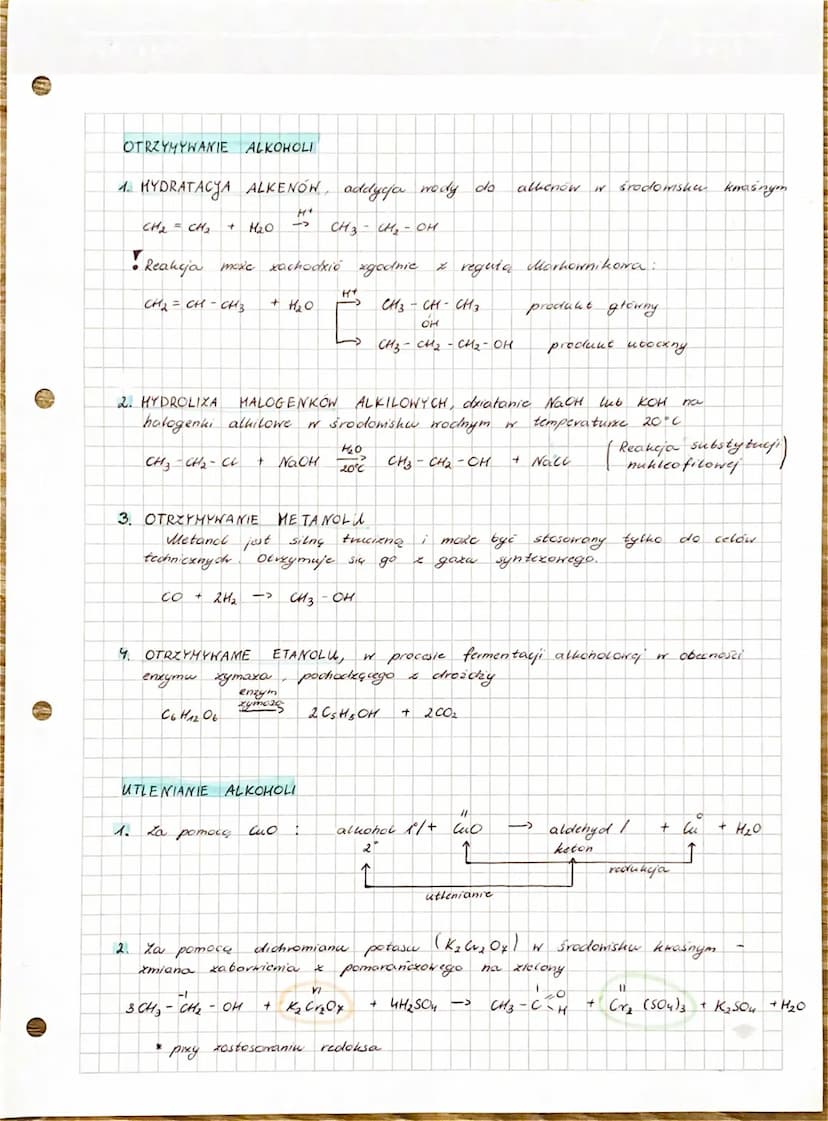 OTRZYMYWANIE ALKOHOLI
1. HYDRATACJA ALKENÓW, addycja wody do alkenów w środowisku kwaśnym
CH2 = CH2 + H2O H+ → CH3 - CH2 - OH
! Reakcja może zachodzić zgodnie z regułą Markownikowa:
CH2 = CH - CH3 + H2O H+ → CH3 - CH - CH3 produkt główny
OH
→ CH3 - CH2 - CH2 - OH produkt uboczny
2. HYDROLIZA HALOGENKÓW ALKILOWYCH, działanie NaOH lub KOH na
halogenki alkilowe w środowisku wodnym w temperaturze 20°C
CH3 - CH2 - Cl + NaOH H2O → 20°C CH3 - CH2 - OH + NaCl (Reakcja substytucji
nukleofilowej)
3. OTRZYMYWANIE METANOLU
Metanol jest silną trucizną i może być stosowany tylko do celów
technicznych. Otrzymuje się go z gazu syntezowego.
CO + 2H2 → CH3 - OH
4. OTRZYMYWANIE ETANOLU, w procesie fermentacji alkoholowej w obecności
enzymu zymaza, pochodzącego z drożdży
enzym
zymaza
C6H12O6 → 2C5H5OH + 2CO2
UTLENIANIE ALKOHOLI
1. Za pomocą CuO : alkohol 1°/ + II CuO → aldehyd / + 0 Cu + H2O
2° keton
redukcja
utlenianie
2. Za pomocą dichromianu potasu (K2Cr2O7) w środowisku kwaśnym -
zmiana zabarwienia z pomarańczowego na zielony
-I VI I II
3CH3 - CH2 - OH + K2Cr2O7 + 4H2SO4 → CH3 - C =O H + Cr2 (SO4)3 + K2SO4 + H2O
* przy zastosowaniu redoksa